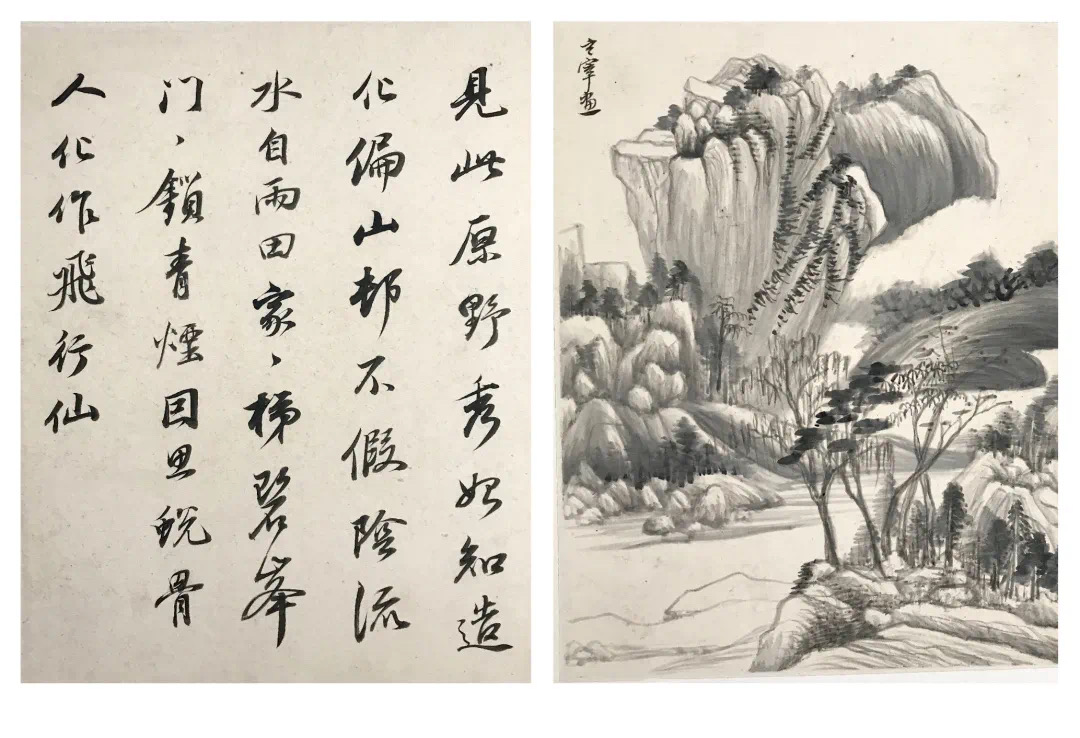 見此原野秀始知造
化偏山邨不假陰流
水自雨田家〻梯碧峯
門〻鎖青煙因思蛻骨
人化作飛行仙
玄宰畫